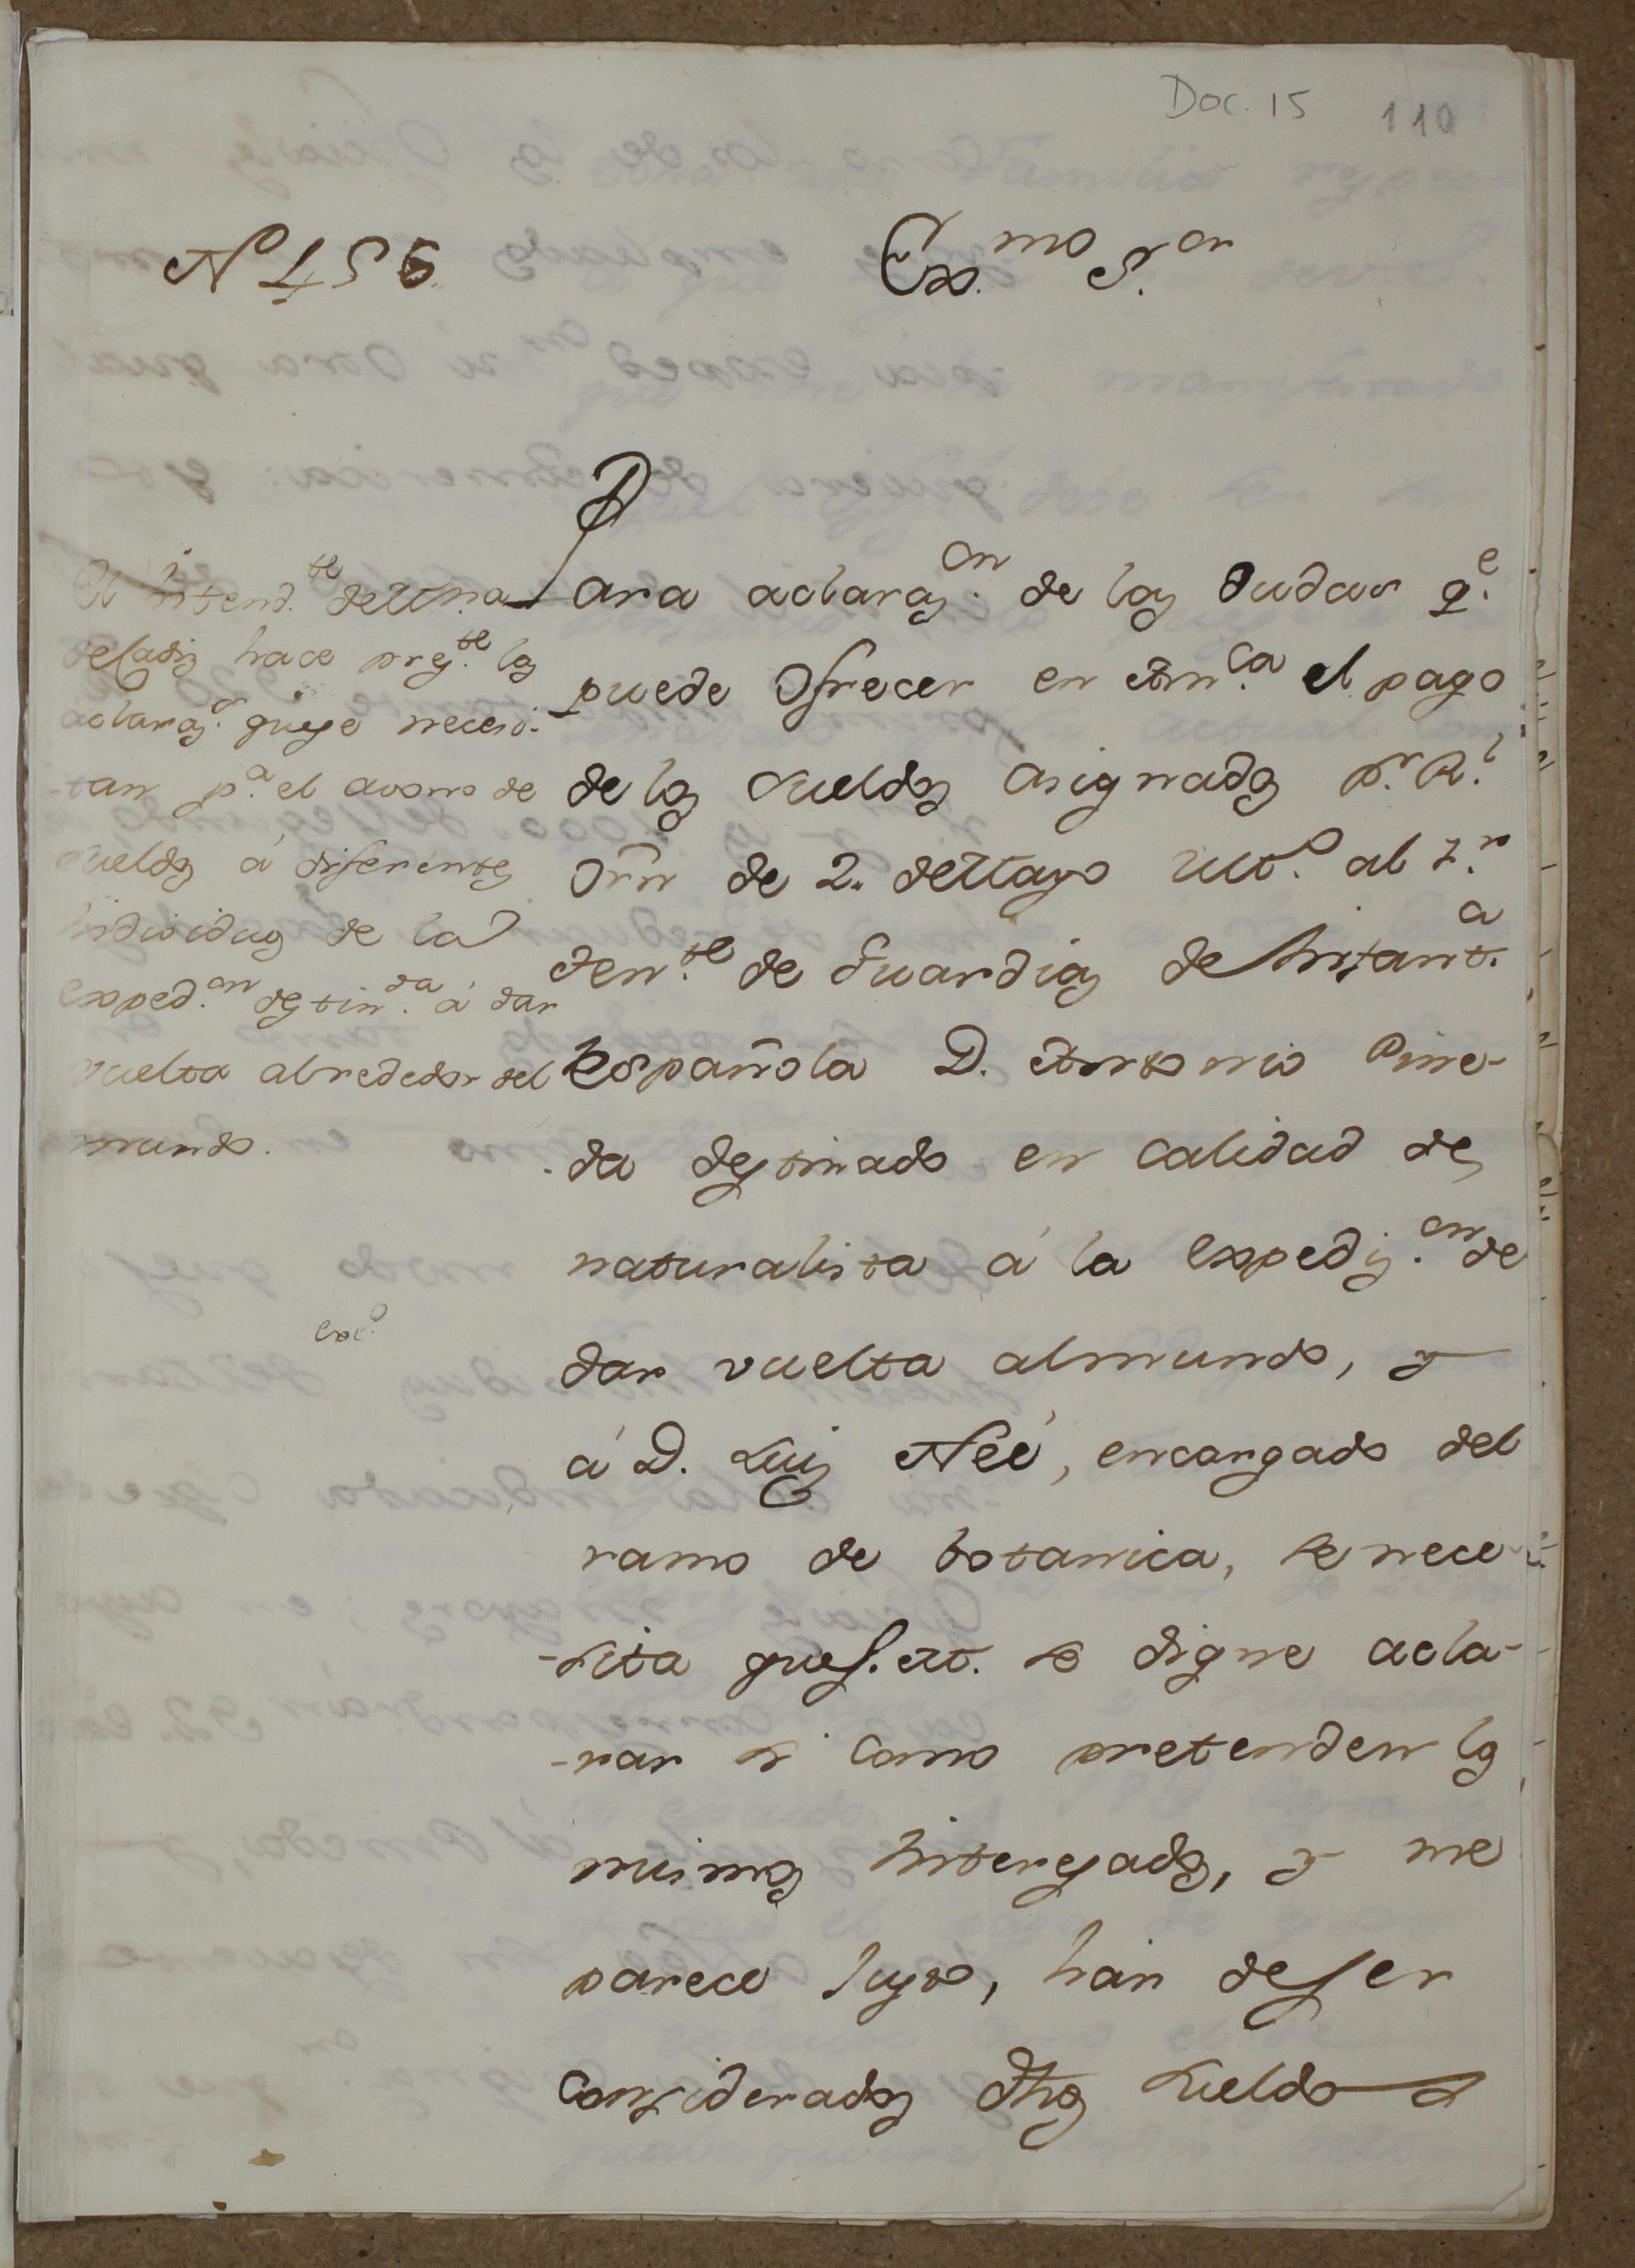 Doc. 15 110
Nº 156
Ex.mo S.or
El Intend.te de Mrna
de Cadiz hace pres.te las
aclaraz.s que se necesi-
-tan p.a el avono de
sueldos á diferentes
Individuos de la
exped.on destin.da á dar
vuelta al rededor del
mundo.
Para aclaraz.on de las dudas q.e
puede Ofrecer en Am.ca el pago
de los sueldos asignados p.r R.l
Orñ de 2. de Mayo ult.o al 1.r
Ten.te de Guardias de Infant.a
Española D. Antonio Pine-
-da destinado en calidad de
naturalista á la expediz.on de
dar vuelta al mundo, y
á D. Luis Neé, encargado del
ramo de botanica, se nece-
-sita que S. A. se digne acla-
-rar si como pretenden los
mismos Interesados, y me
parece Justo, hán de ser
considerados dhos sueldos